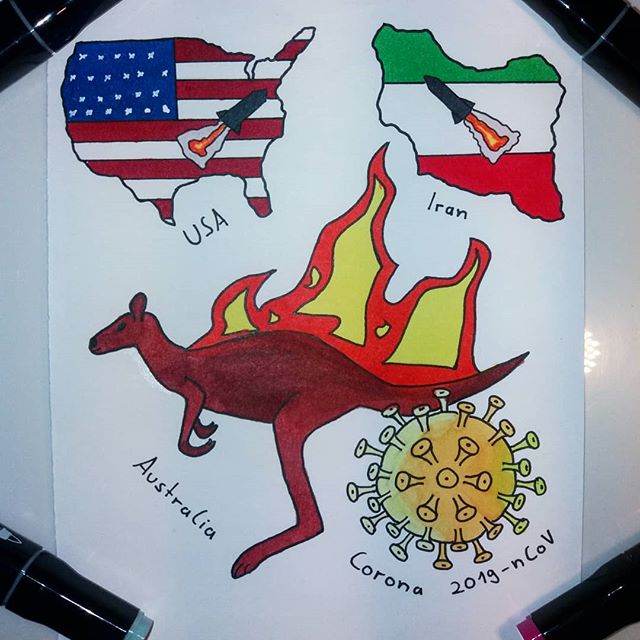 USA
Iran
Australia
Corona 2019-nCoV